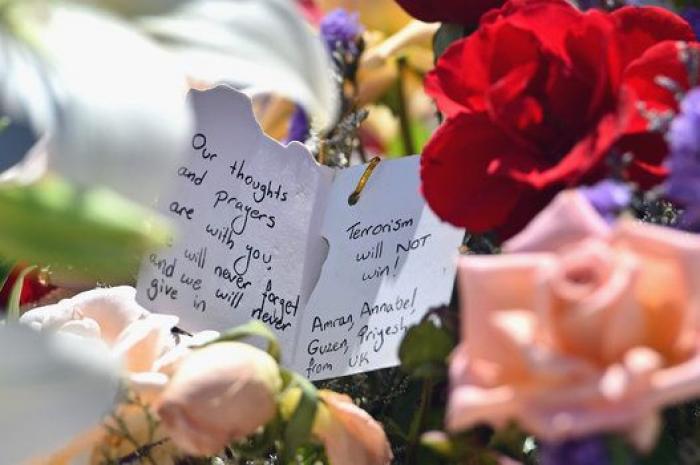 Our thoughts
and prayers
are with you.
will never forget
and we will never
give in
Terrorism
will NOT
win!
Amran, Annabel,
Guzen, Priyesh,
from UK